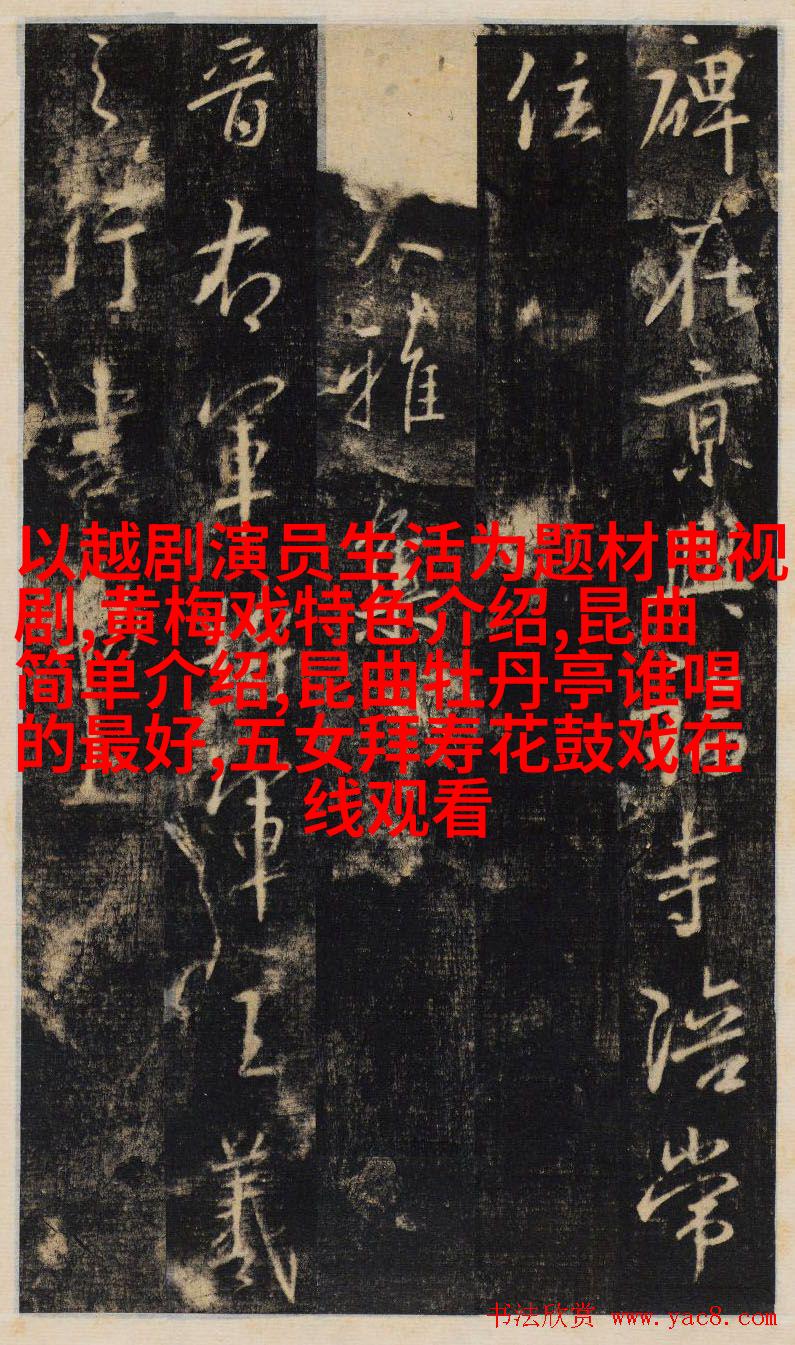 碑在京興寺陪常
住
雅集
晉右軍將軍王羲
之行書
以越剧演员生活为题材电视
剧,黄梅戏特色介绍,昆曲
简单介绍,昆曲牡丹亭谁唱
的最好,五女拜寿花鼓戏在
线观看
书法欣赏 www.yac8.com